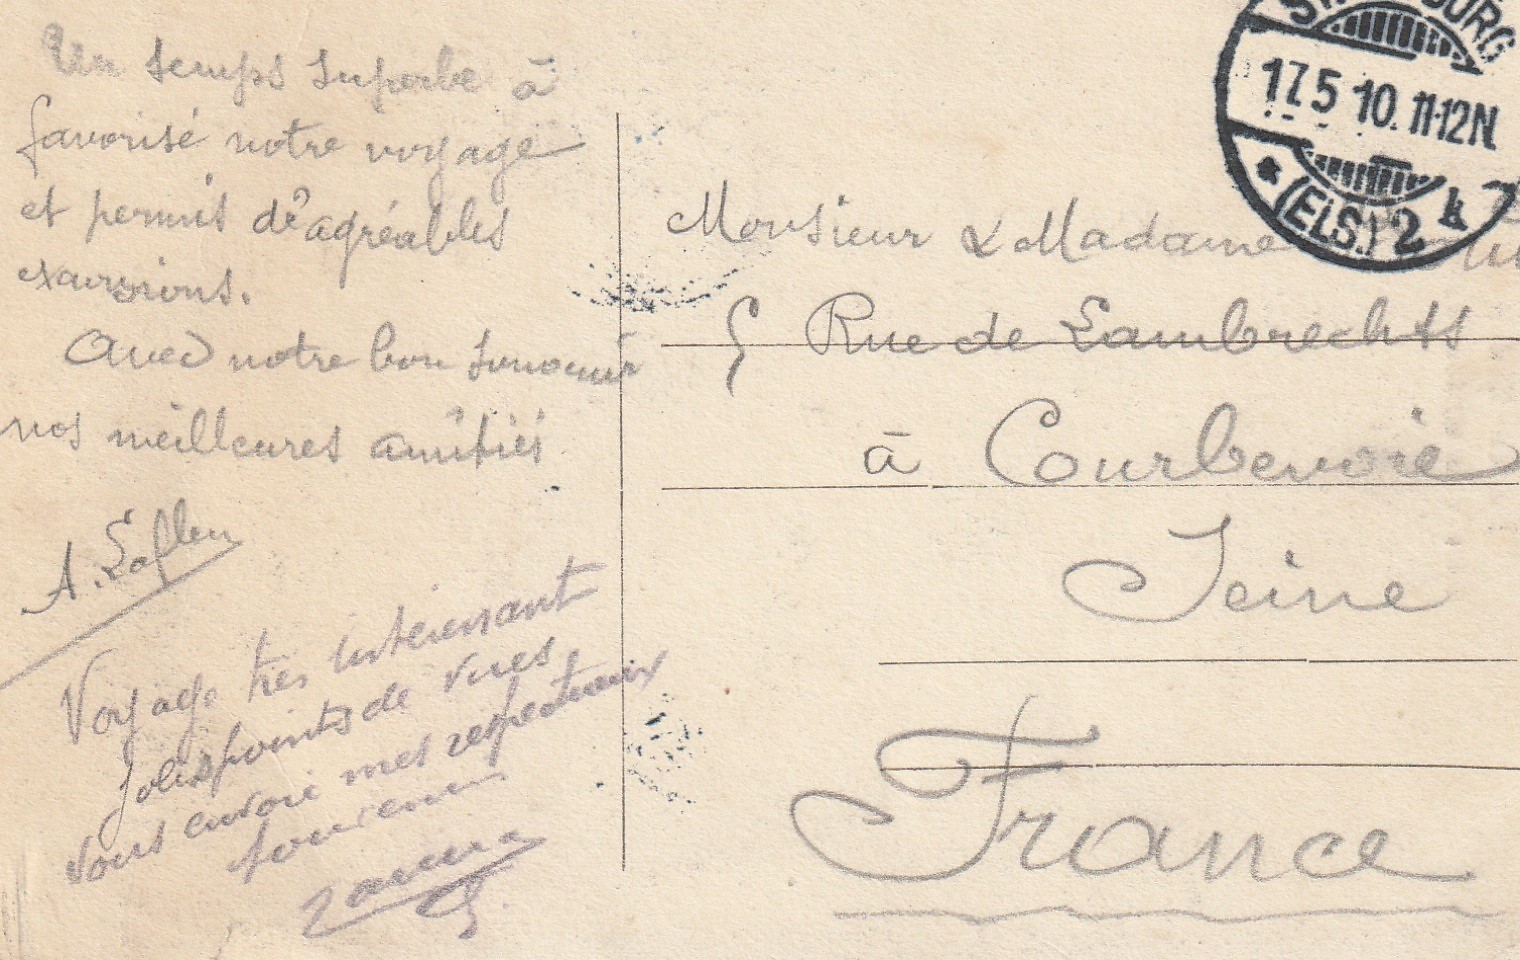 Un temps superbe à
favorisé notre voyage
et permis d'agréables
excursions.
Avec notre bon souvenir
nos meilleures amitiés
Voyage très intéressant
jolis points de vues
vous envoie mes respectueux
souvenir
Monsieur & Madame
5 Rue de Lambrechts
à Courbevoie
Seine
France
17.5.10. 11-12N
* (ELS.) 2 k